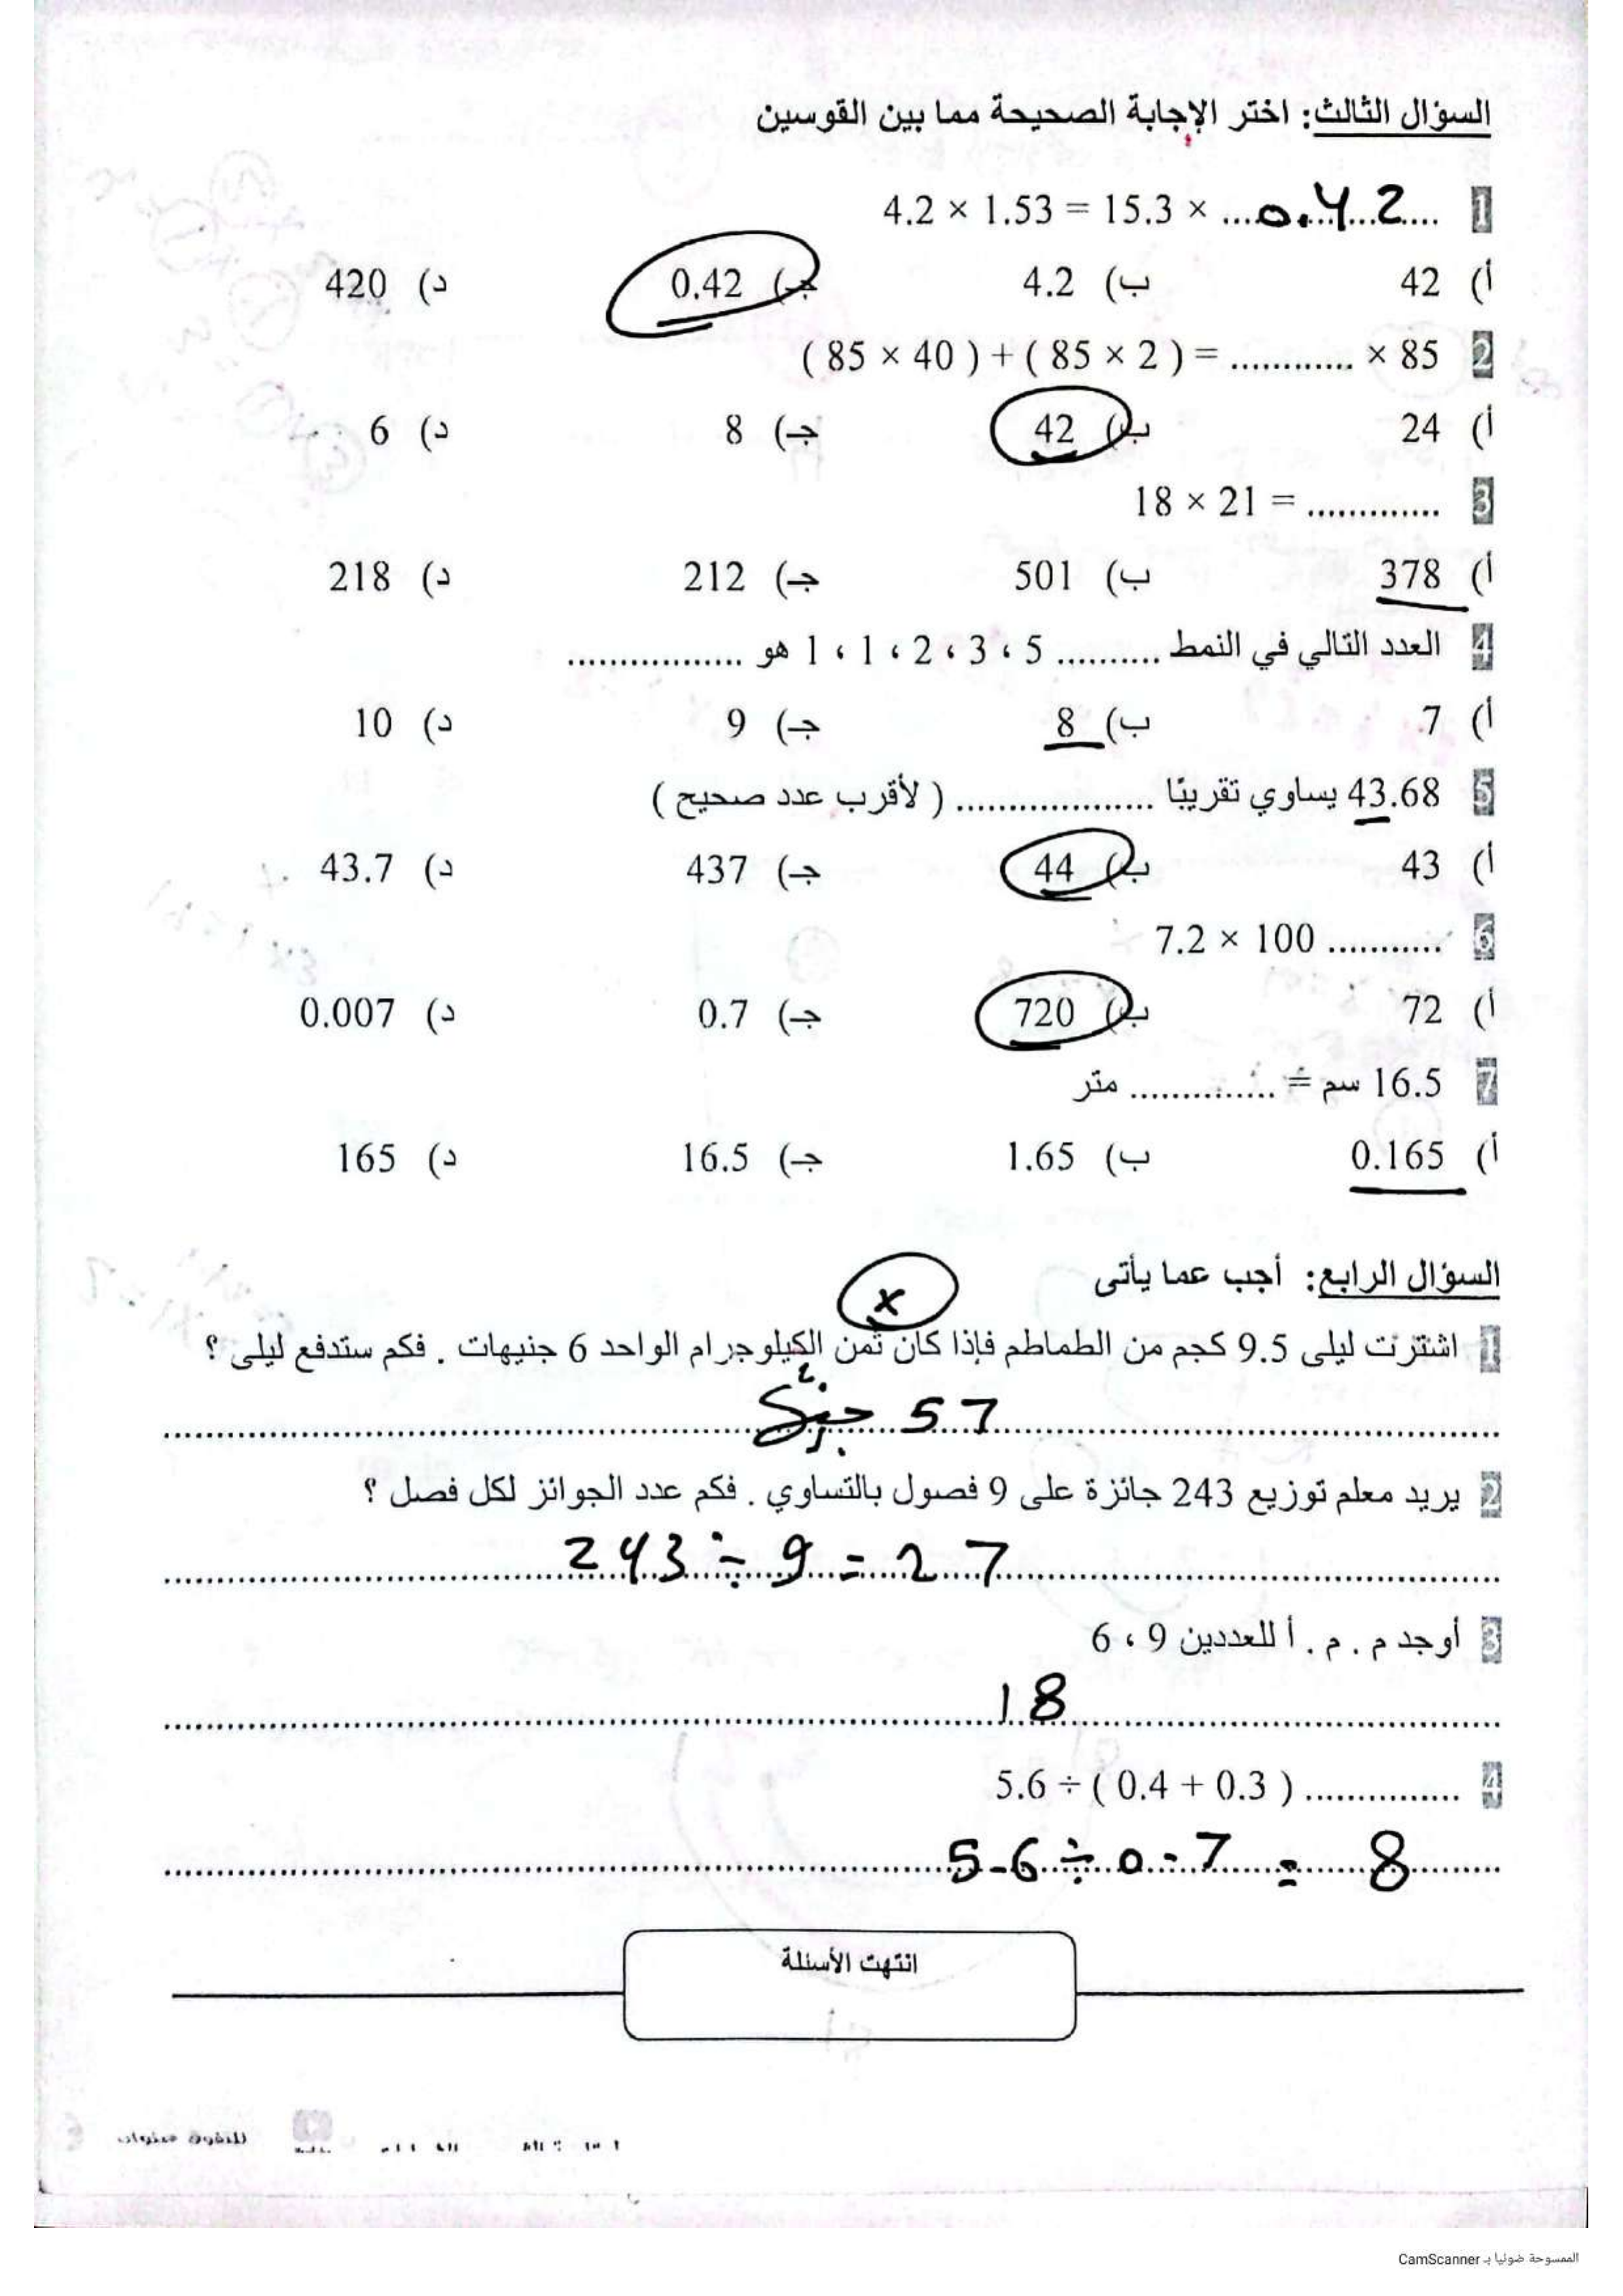 السؤال الثالث: اختر الإجابة الصحيحة مما بين القوسين
1 4.2 × 1.53 = 15.3 × ....0.42....
أ) 42 ب) 4.2 جـ) 0.42 د) 420
2 ( 85 × 40 ) + ( 85 × 2 ) = ............ × 85
أ) 24 ب) 42 جـ) 8 د) 6
3 18 × 21 = .............
أ) 378 ب) 501 جـ) 212 د) 218
4 العدد التالي في النمط .......... 5 ، 3 ، 2 ، 1 ، 1 هو .................
أ) 7 ب) 8 جـ) 9 د) 10
5 43.68 يساوي تقريبًا ................... ( لأقرب عدد صحيح )
أ) 43 ب) 44 جـ) 437 د) 43.7
6 7.2 × 100 ...........
أ) 72 ب) 720 جـ) 0.7 د) 0.007
7 16.5 سم = .............. متر
أ) 0.165 ب) 1.65 جـ) 16.5 د) 165
السؤال الرابع: أجب عما يأتى
x
1 اشترت ليلى 9.5 كجم من الطماطم فإذا كان ثمن الكيلوجرام الواحد 6 جنيهات . فكم ستدفع ليلى ؟
57 جنيه
2 يريد معلم توزيع 243 جائزة على 9 فصول بالتساوي . فكم عدد الجوائز لكل فصل ؟
243 ÷ 9 = 27
3 أوجد م . م . أ للعددين 9 ، 6
18
4 5.6 ÷ ( 0.4 + 0.3 ) ...............
5.6 ÷ 0.7 = 8
انتهت الأسئلة
الممسوحة ضوئيا بـ CamScanner